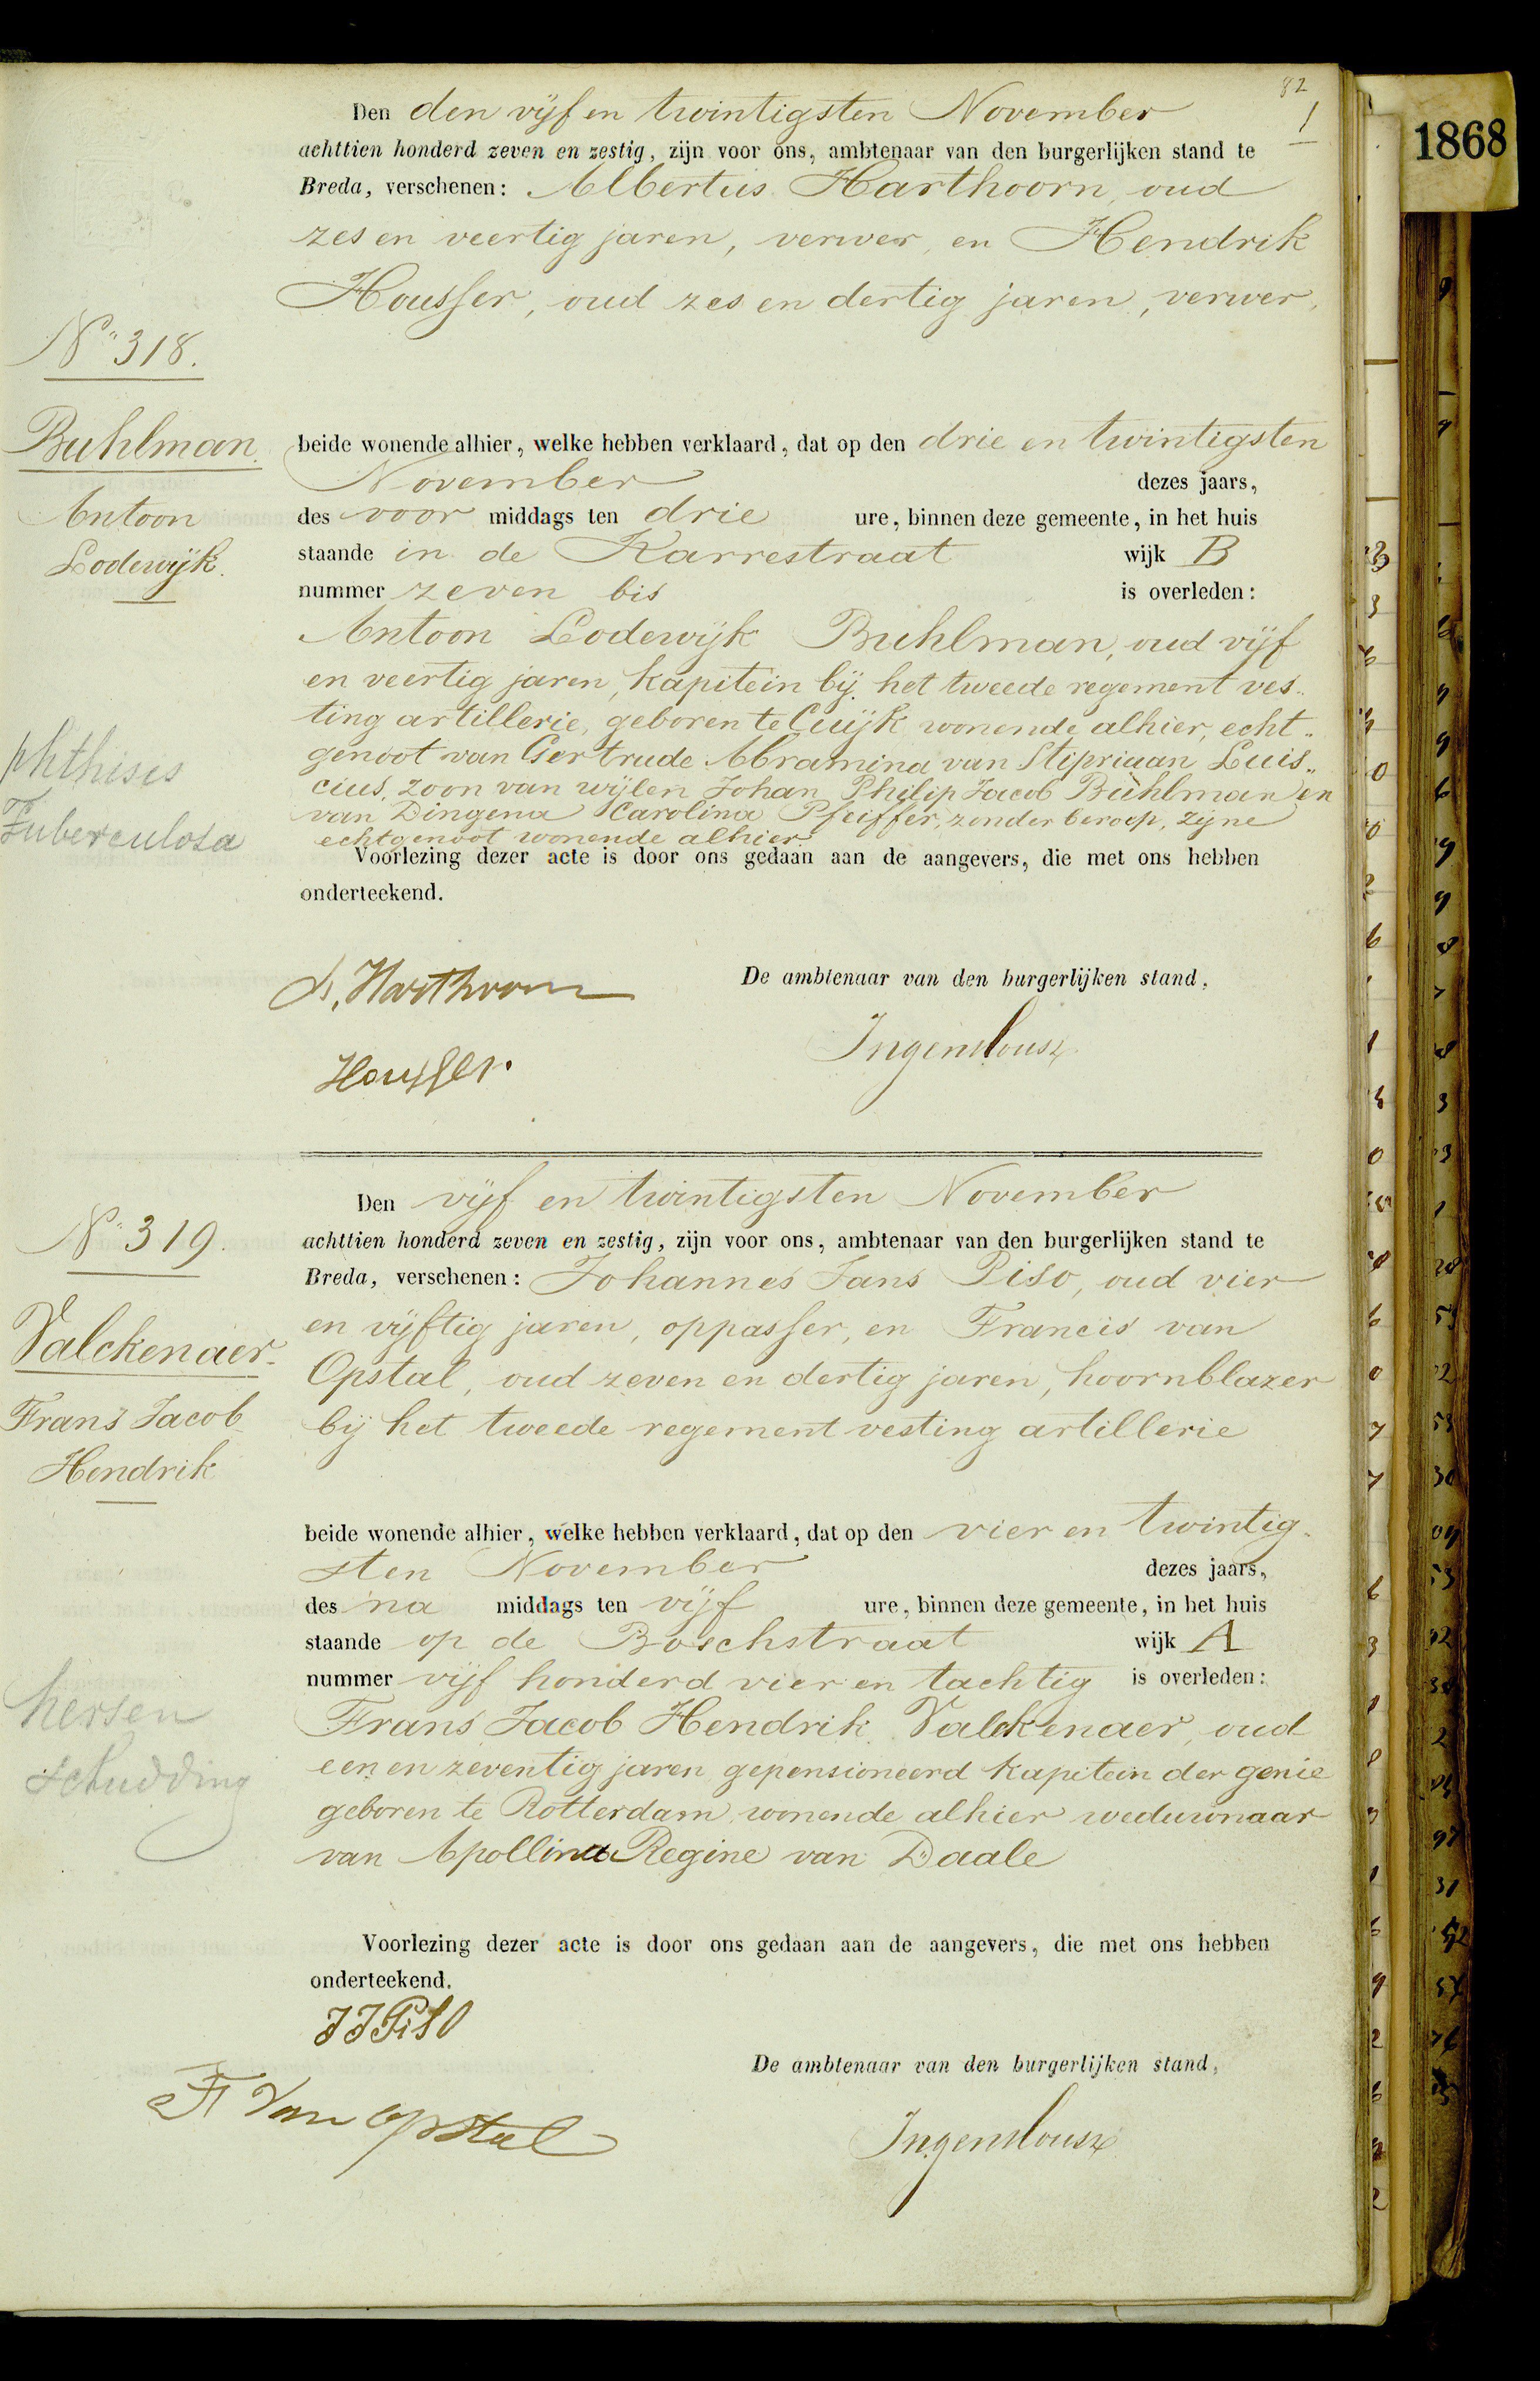 82
1
1868
Den den vijf en twintigsten November
achttien honderd zeven en zestig, zijn voor ons, ambtenaar van den burgerlijken stand te
Breda, verschenen: Albertus Harthoorn, oud
zes en veertig jaren, verwer, en Hendrik
Housser, oud zes en dertig jaren, verwer,
No 318.
Buhlman.
Antoon
Lodewijk.
beide wonende alhier, welke hebben verklaard, dat op den drie en twintigsten
November dezes jaars,
des voor middags ten drie ure, binnen deze gemeente, in het huis
staande in de Karrestraat wijk B
nummer zeven bis is overleden:
Antoon Lodewijk Buhlman, oud vijf
en veertig jaren, kapitein bij het tweede regement ves„
ting artillerie, geboren te Cuijk wonende alhier, echt„
genoot van Gertrude Abramina van Stipriaan Luis„
cius, zoon van wijlen Johan Philip Jacob Bühlman en
van Dingena Carolina Pfeiffer, zonder beroep, zijne
echtgenoot wonende alhier.
phthisis
Tuberculosa
Voorlezing dezer acte is door ons gedaan aan de aangevers, die met ons hebben
onderteekend.
A. Harthoorn
De ambtenaar van den burgerlijken stand,
Ingenhousz
Housser.
No 319.
Valckenaer.
Frans Jacob
Hendrik
Den vijf en twintigsten November
achttien honderd zeven en zestig, zijn voor ons, ambtenaar van den burgerlijken stand te
Breda, verschenen: Johannes Jans Piso, oud vier
en vijftig jaren, oppasser, en Francis van
Opstal, oud zeven en dertig jaren, hoornblazer
bij het tweede regement vesting artillerie
beide wonende alhier, welke hebben verklaard, dat op den vier en twintig„
sten November dezes jaars,
des na middags ten vijf ure, binnen deze gemeente, in het huis
staande op de Boschstraat wijk A
nummer vijf honderd vier en tachtig is overleden:
Frans Jacob Hendrik Valckenaer, oud
een en zeventig jaren gepensioneerd kapitein der genie
geboren te Rotterdam, wonende alhier weduwnaar
van Apollina Regine van Daale
hersen
schudding
Voorlezing dezer acte is door ons gedaan aan de aangevers, die met ons hebben
onderteekend.
JJ Piso
De ambtenaar van den burgerlijken stand,
F Van Opstal
Ingenhousz